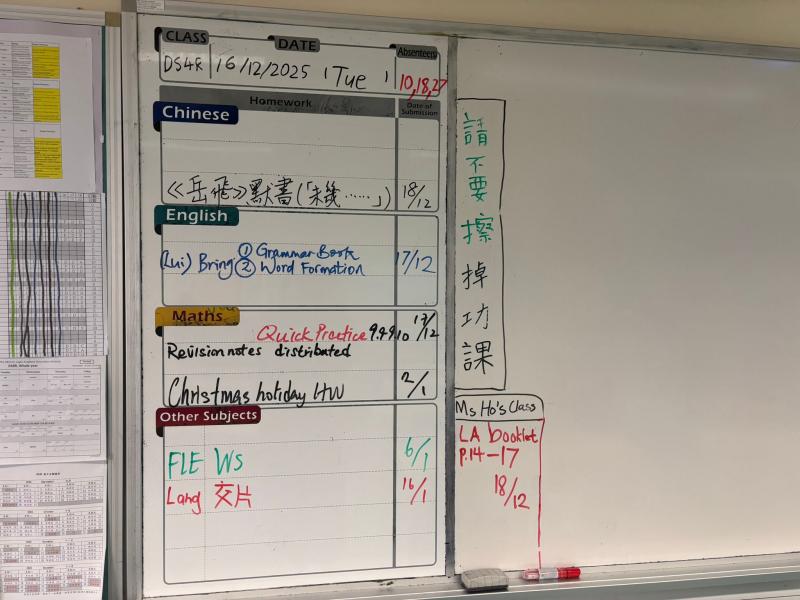 CLASS
DATE
Absentees
DS4R 16/12/2025 (Tue) 10,18,27
Homework
Date of Submission
Chinese
《岳飛》默書(「未幾……」) 18/12
English
(Lui) Bring ① Grammar Book 17/12
② Word Formation
Maths
Quick Practice 9.4-9.10 17/12
Revision notes distributed
Christmas holiday HW 2/1
Other Subjects
FLE WS 6/1
Lang 交片 16/1
請不要擦掉功課
Ms Ho's Class
LA booklet
P.14-17
18/12